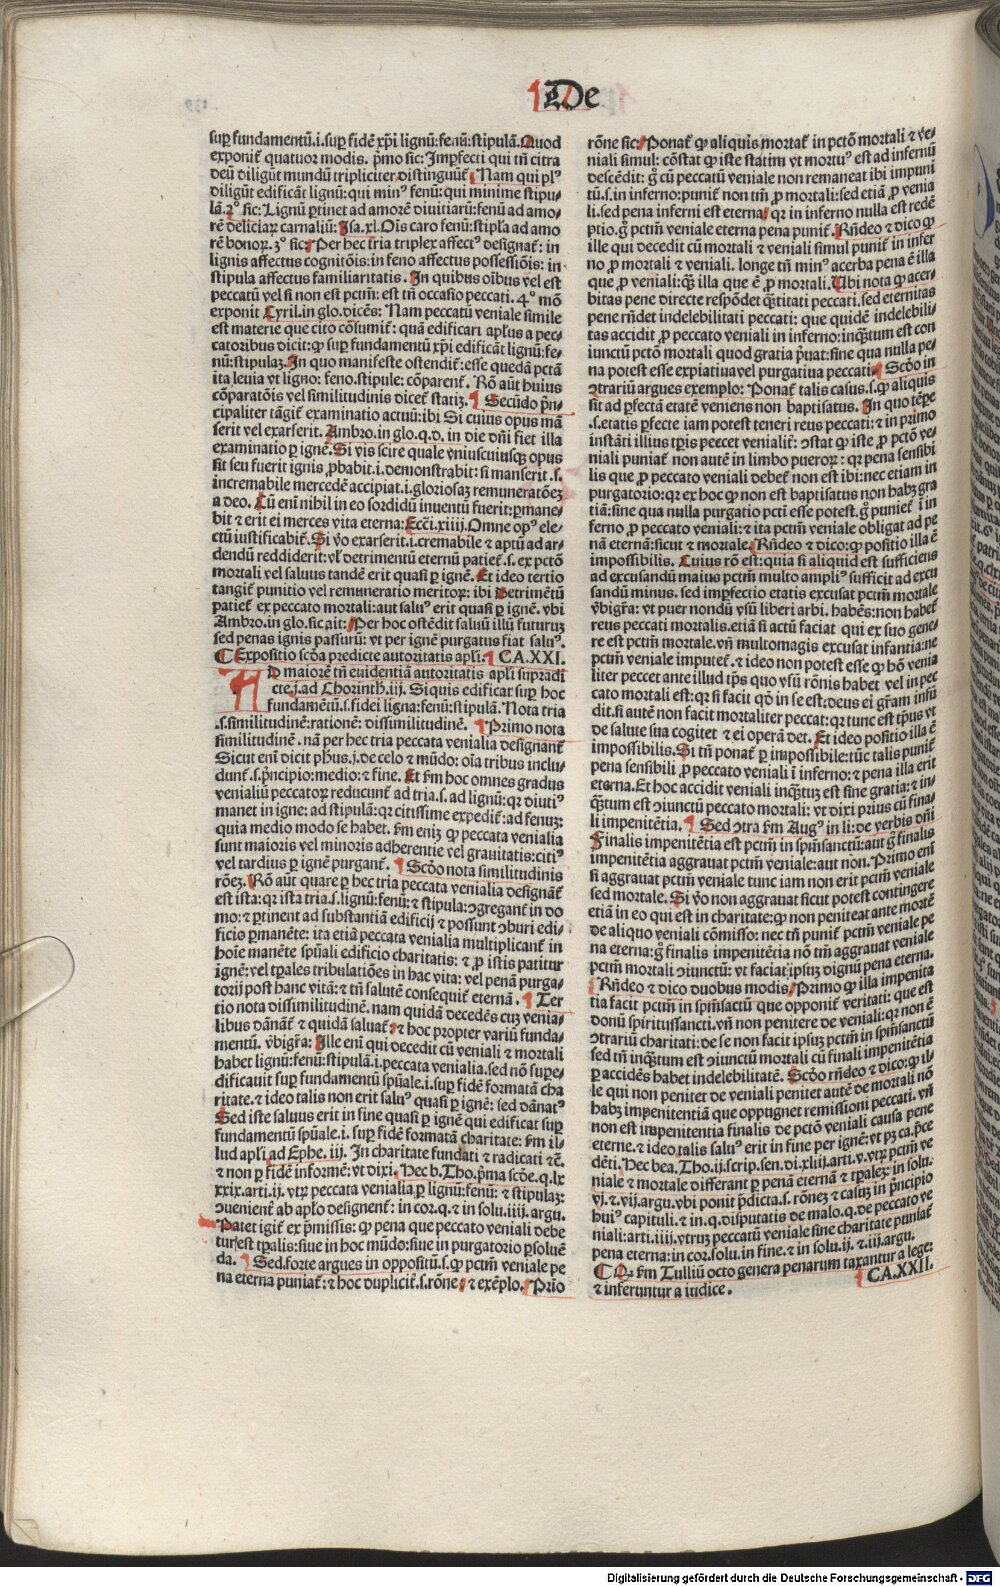 De
sup fundamentū.i.sup fidē xp̄i lignū:fenū:stipulā.Quod
exponit̄ quatuor modis. p̄mo sic:Imp̱fecti qui tn̄ citra
deū diligūt mundū tripliciter distinguūt̄ Nam qui plꝰ
diligūt edificāt lignū:qui minꝰ fenū:qui minime stipu⸗
lā.2ꝰ sic:Lignū p̱tinet ad amorē diuitiarū:fenū ad amo⸗
rē deliciaꝝ carnaliū:Isa.xl.Oīs caro fenū:stipl̄a ad amo
rē bonoꝝ.3ꝰ sic:Per hec tria triplex affectꝰ designat̄: in
lignis affectus cognitōis:in feno affectus possessiōis: in⸗
stipula affectus familiaritatis. In quibus oībus vel est
peccatū vel si non est pctm̄: est tn̄ occasio peccati. 4.ꝰ mō
exponit Cyril.in glo.dicēs: Nam peccatū veniale simile
est materie que cito cōsumit̄: quā edificari apl̄us a pec⸗
catoribus dicit:ꝙ sup fundamentū xp̄i edificāt lignū:fe⸗
nū:stipulaꝫ.In quo manifeste ostendit̄:esse quedā pctā
ita leuia vt ligno: feno.stipule: cōparent̄. Rō aūt huius
cōparatōis vel similitudinis dicet̄ statiꝫ. ¶ Secūdo p̄n⸗
cipaliter tāgit̄ examinatio actuū:ibi Si cuius opus mā
serit vel exarserit. Ambro.in glo.q.d. in die dn̄i fiet illa
examinatio p̱ ignē.Si vis scire quale vniuscuiusqꝫ opus
sit seu fuerit ignis ꝓbabit.i.demonstrabit: si manserit .s.
incremabile mercedē accipiat.i.gloriosaꝫ remuneratōeꝫ
a deo. Cū enī nihil in eo sordidū inuentū fuerit:p̱mane⸗
bit ⁊ erit ei merces vita eterna:Ecc̄i.xiiij.Omne opꝰ ele⸗
ctū iustificabit̄.Si v̄o exarserit.i.cremabile ⁊ aptū ad ar⸗
dendū reddiderit:vl̄ detrimentū eternū patiet̄.s. ex pctō
mortali vel saluus tandē erit quasi p̱ ignē. Et ideo tertio
tangit̄ punitio vel remuneratio meritoꝝ: ibi Detrimētū
patiet̄ ex peccato mortali:aut saluꝰ erit quasi p̱ ignē. vbi
Ambro.in glo.sic ait: Per hoc ostēdit saluū illū futuruꝫ
sed penas ignis passurū: vt per ignē purgatus fiat saluꝰ.
¶ Expositio scd̄a predicte autoritatis apl̄i. ¶ CA.XXI.
AD maiorē tn̄ euidentiā autoritatis apl̄i supradi
cte.j.ad Chorinth̄.iij. Siquis edificat sup hoc
fundamētū.s.fidei ligna:fenū:stipulā. Nota tria
.s.similitudinē:rationē: dissimilitudinē. ¶ Primo nota
similitudinē. nā per hec tria peccata venialia designant̄
Sicut enī dicit ph̄us.j.de celo ⁊ mūdo: oīa tribus inclu⸗
dunt̄.s.p̄ncipio:medio:⁊ fine. Et s̄m hoc omnes gradus
venialiū peccatoꝝ reducunt̄ ad tria.s. ad lignū:qꝛ diutiꝰ
manet in igne: ad stipulā: qꝛ citissime expedit̄: ad fenuꝫ:
quia medio modo se habet. s̄m eniꝫ ꝙ peccata venialia
sunt maioris vel minoris adherentie vel grauitatis:citiꝰ
vel tardius p̱ ignē purgant̄. ¶ Scd̄o nota similitudinis
rōeꝫ. Rō aūt quare p̱ hec tria peccata venialia designāt̄
est ista:qꝛ ista tria.s.lignū:fenū: ⁊ stipula:ↄgregant̄ in do
mo: ⁊ p̱tinent ad substantiā edificij ⁊ possunt ↄburi edi⸗
ficio p̱manēte: ita etiā peccata venialia multiplicant̄ in
hoīe manēte sp̄uali edificio charitatis: ⁊ ꝓ istis patitur
ignē: vel tp̱ales tribulatiōes in hac vita: vel penā purga⸗
torij post hanc vitā: ⁊ tn̄ salutē consequit̄ eternā . ¶ Ter
tio nota dissimilitudinē. nam quidā decedēs cuꝫ venia⸗
libus dānāt̄ ⁊ quidā saluat̄ ⁊ hoc propter variū funda⸗
mentū. v̄bigr̄a: Ille enī qui decedit cū veniali ⁊ mortali
habet lignū:fenū:stipulā.i.peccata venialia.sed nō supe⸗
dificauit sup fundamentū sp̄uale.i.sup fidē formatā cha
ritate. ⁊ ideo talis non erit saluꝰ quasi p̱ ignē: sed dānatꝰ
Sed iste saluus erit in fine quasi p̱ ignē qui edificat sup
fundamentū sp̄uale.i. sup fidē formatā charitate: s̄m il⸗
lud apl̄i ad Ephe. iij. In charitate fundati ⁊ radicati ⁊c̄.
⁊ non p̱ fidē informē: vt dixi. Hec b.Tho.p̄ma scd̄e.q.lx
xxix.arti.ij. vtꝝ peccata venialia p̱ lignū:fenū: ⁊ stipulaꝫ:
ↄuenient̄ ab apl̄o designent̄: in cor.q. ⁊ in solu.iiij.argu.
Patet igit̄ ex p̄missis: ꝙ pena que peccato veniali debe
tur:est tp̱alis:siue in hoc mūdo:siue in purgatorio p̱soluē
da. ¶ Sed forte argues in oppositū.s.ꝙ pctm̄ veniale pe
na eterna puniat̄: ⁊ hoc duplicit̄.s.rōne: ⁊ exēplo. Prīo
rōne sic: Ponat̄ ꝙ aliquis mortat̄ in pctō mortali ⁊ ve⸗
niali simul: cōstat ꝙ iste statim vt mortuꝰ est ad infernū
descēdit: g̊ cū peccatū veniale non remaneat ibi impuni
tū.s.in inferno:punit̄ non tm̄ ꝓ mortali:sed etiā ꝓ venia
li.sed pena inferni est eterna: qꝛ in inferno nulla est redē
ptio.g̊ pctm̄ veniale eterna pena punit̄. Rn̄deo ⁊ dico ꝙ
ille qui decedit cū mortali ⁊ veniali simul punit̄ in infer
no ꝓ mortali ⁊ veniali. longe tn̄ minꝰ acerba pena ē illa
que ꝓ veniali:qꝫ illa que ē ꝓ mortali. Ubi nota ꝙ acer⸗
bitas pene directe respōdet q̄titati peccati.sed eternitas
pene rn̄det indelebilitati peccati: que quidē indelebili⸗
tas accidit ꝓ peccato veniali in inferno:inqꝫtum est con
iunctū pctō mortali quod gratia p̄uat:sine qua nulla pe⸗
na potest esse expiatiua vel purgatiua peccati. ¶ Scd̄o in
ↄtrariū argues exemplo: Ponat̄ talis casus.s.ꝙ aliquis
sit ad p̱fectā etatē veniens non baptisatus. In quo tēpe
.s.etatis p̱fecte iam potest teneri reus peccati: ⁊ in primo
instāti illius tp̱is peccet venialit̄: ↄstat ꝙ iste ꝓ pctō ve⸗
niali puniat̄ non autē in limbo pueroꝝ: qꝛ pena sensibi
lis que ꝓ peccato veniali debet̄ non est ibi:nec etiam in
purgatorio: qꝛ ex hoc ꝙ non est baptisatus non habꝫ gra
tiā:sine qua nulla purgatio pcti esse potest.g̊ puniet̄ ī in
ferno ꝓ peccato veniali: ⁊ ita pctm̄ veniale obligat ad pe
nā eternā:sicut ⁊ mortale. Rn̄deo ⁊ dico:ꝙ positio illa ē
impossibilis. Cuius rō est: quia si aliquid est sufficiens
ad excusandū maius pctm̄ multo ampliꝰ sufficit ad excu
sandū minus. sed imp̱fectio etatis excusat pctm̄ mortale
v̄bigr̄a: vt puer nondū vsū liberi arbi. habēs: non habet̄
reus peccati mortalis.etiā si actū faciat qui ex suo gene⸗
re est pctm̄ mortale.vn̄ multomagis excusat infantia:ne
pctm̄ veniale imputet̄. ⁊ ideo non potest esse ꝙ hō venia
liter peccet ante illud tp̄s quo vsū rōnis habet vel in pec
cato mortali est: qꝛ si facit qd̄ in se est:deus ei gr̄am infū
dit.si autē non facit mortaliter peccat: qꝛ tunc est tp̄us vt
de salute sua cogitet ⁊ ei operā det. Et ideo positio illa ē
impossibilis. Si tn̄ ponat̄ p̱ impossibile:tūc talis punit̄
pena sensibili ꝓ peccato veniali ī inferno: ⁊ pena illa erit
eterna. Et hoc accidit veniali inqꝫtuꝫ est sine gratia: ⁊ in⸗
qꝫtum est ↄiunctū peccato mortali: vt dixi prius cū fina⸗
li impenitētia. ¶ Sed ↄtra s̄m Augꝰ in li: de verbis dn̄i
Finalis impenitētia est pctm̄ in sp̄msanctū: aut g̊ finalis
impenitētia aggrauat pctm̄ veniale: aut non. Primo enī
si aggrauat pctm̄ veniale tunc iam non erit pctm̄ veniale
sed mortale. Si v̄o non aggrauat sicut potest contingere
etiā in eo qui est in charitate: ꝙ non peniteat ante mortē
de aliquo veniali cōmisso: nec tn̄ punit̄ pctm̄ veniale pe
na eterna: g̊ finalis impenitētia nō tm̄ aggrauat veniale
pctm̄ mortali ↄiunctū: vt faciat ipsuꝫ dignū pena eterna.
Rn̄deo ⁊ dico duobus modis. Primo ꝙ illa impenitē
tia facit pctm̄ in sp̄msāctū que opponit̄ veritati: que est
donū spiritussancti. vn̄ non penitere de veniali: qꝛ non ē
ↄtrariū charitati: de se non facit ipsuꝫ pctm̄ in sp̄msanctū
sed tn̄ inqꝫtum est ↄiunctū mortali cū finali impenitētia
p̱ accidēs habet indelebilitatē. Scd̄o rn̄deo ⁊ dico: ꝙ il⸗
le qui non penitet de veniali penitet autē de mortali nō
habꝫ impenitentiā que oppugnet remissioni peccati. vn̄
non est impenitentia finalis de pctō veniali causa pene
eterne. ⁊ ideo talis saluꝰ erit in fine per ignē: vt pꝫ ca.p̄ce
dēti. Hec bea.Tho.ij.scrip.sen.di.xliij.arti.v.vtꝝ pctm̄ ve
niale ⁊ mortale differant p̱ penā eternā ⁊ tp̱aleꝫ: in solu.
vj.⁊.vij.argu. vbi ponit p̄dicta.s. rōneꝫ ⁊ casuꝫ in p̄ncipio
huiꝰ capituli. ⁊ in.q.disputatis de malo.q.de peccato ve
niali:arti.iiij.vtruꝫ peccatū veniale sine charitate puniat̄
pena eterna: in cor.solu.in fine. ⁊ in solu.ij. ⁊.iij.argu.
¶ Qꝫ s̄m Tulliū octo genera penarum taxantur a lege:
⁊ inferuntur a iudice. ¶ CA.XXII.
Digitalisierung gefördert durch die Deutsche Forschungsgemeinschaft - DFG